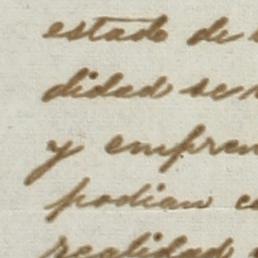 estado de
didad se
y empren
podian
realidad